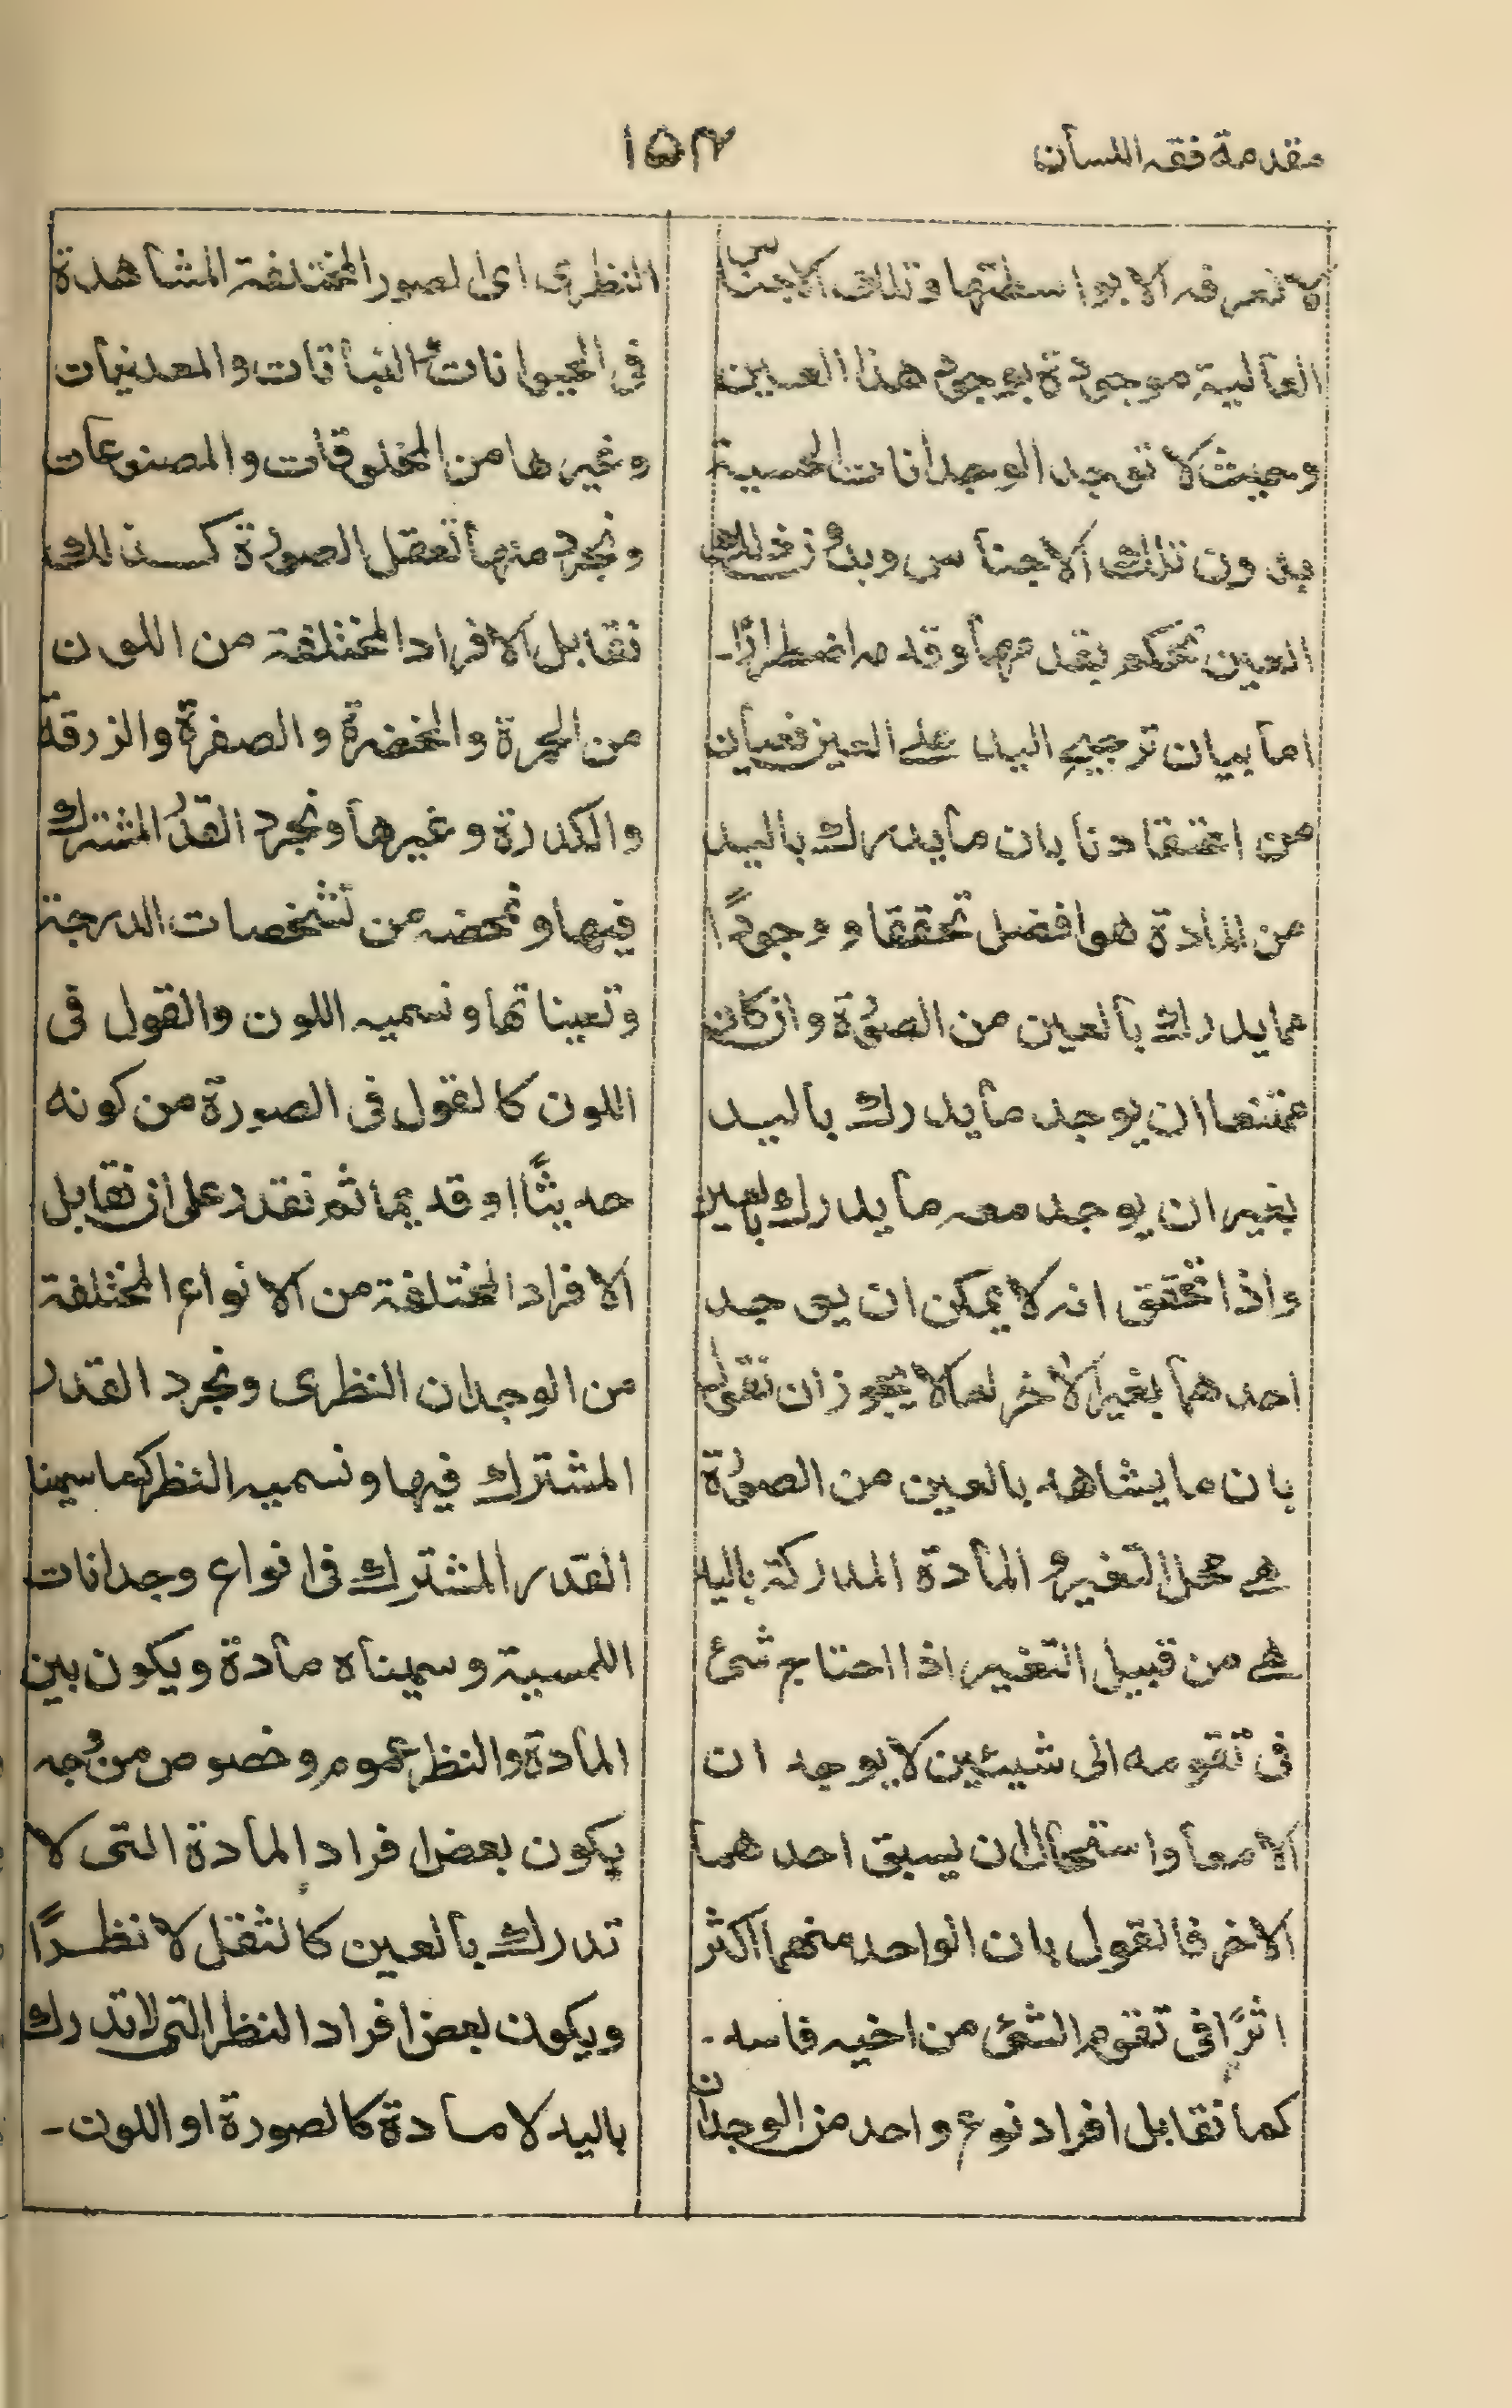 مقدمة فقہ اللسان
۱۵۴
لا نعرفہ الا بواسطتها وتلک الاجناس
العالیۃ موجودة بوجود هذا العین
وحیث لا توجد الوجدانات الحسیۃ
بدون تلک الاجناس وبدون ذلک
العین نحکم بقدمها وقدمہ اضطرارًا۔
اما بیان ترجیح الید علی العین فعیان
من اعتقادنا بان ما یدرک بالید
من المادة هو افضل تحققا ووجودًا
مما یدرک بالعین من الصورة وان کان
ممتنعا ان یوجد ما یدرک بالید
بغیر ان یوجد معہ ما یدرک بالعین
واذا تحقق انہ لا یمکن ان یوجد
احدهما بغیر الاخر لما لا یجوز ان نقول
بان ما یشاهد بالعین من الصورة
هے محل التغیر و المادة المدرکۃ بالید
هے من قبیل التغیر اذا احتاج شئ
فی تقومہ الی شیئین لا یوجدان
الا معا واستحال ان یسبق احدهما
الاخر فالقول بان الواحد منهما اکثر
اثرًا فی تقوم الشئ من اخیہ فاسد۔
کما نقابل افراد نوع واحد من الوجدان
النظری ای الصور المختلفۃ المشاهدة
فی الحیوانات و النباتات والمعدنیات
وغیرها من المخلوقات والمصنوعات
ونجرد منها تعقل الصورة کذلک
نقابل الافراد المختلفۃ من اللون
من الحمرة والخضرة والصفرة والزرقة
والکدرة وغیرها ونجرد القدر المشترک
فیها ونمحضہ من تشخصات الدرجۃ
وتعیناتها ونسمیہ اللون والقول فی
اللون کالقول فی الصورة من کونه
حدیثًا او قدیما ثم نقدر علی ان نقابل
الافراد المختلفۃ من الانواع المختلفة
من الوجدان النظری ونجرد القدر
المشترک فیها ونسمیہ النظر کما سمینا
القدر المشترک فی انواع وجدانات
اللمسیۃ وسمیناه مادة ویکون بین
المادة والنظر عموم وخصوص من وجہ
یکون بعض افراد المادة التی لا
تدرک بالعین کالثقل لا نظرًا
ویکون بعض افراد النظر التی لا تدرک
بالید لا مادة کالصورة او اللون۔